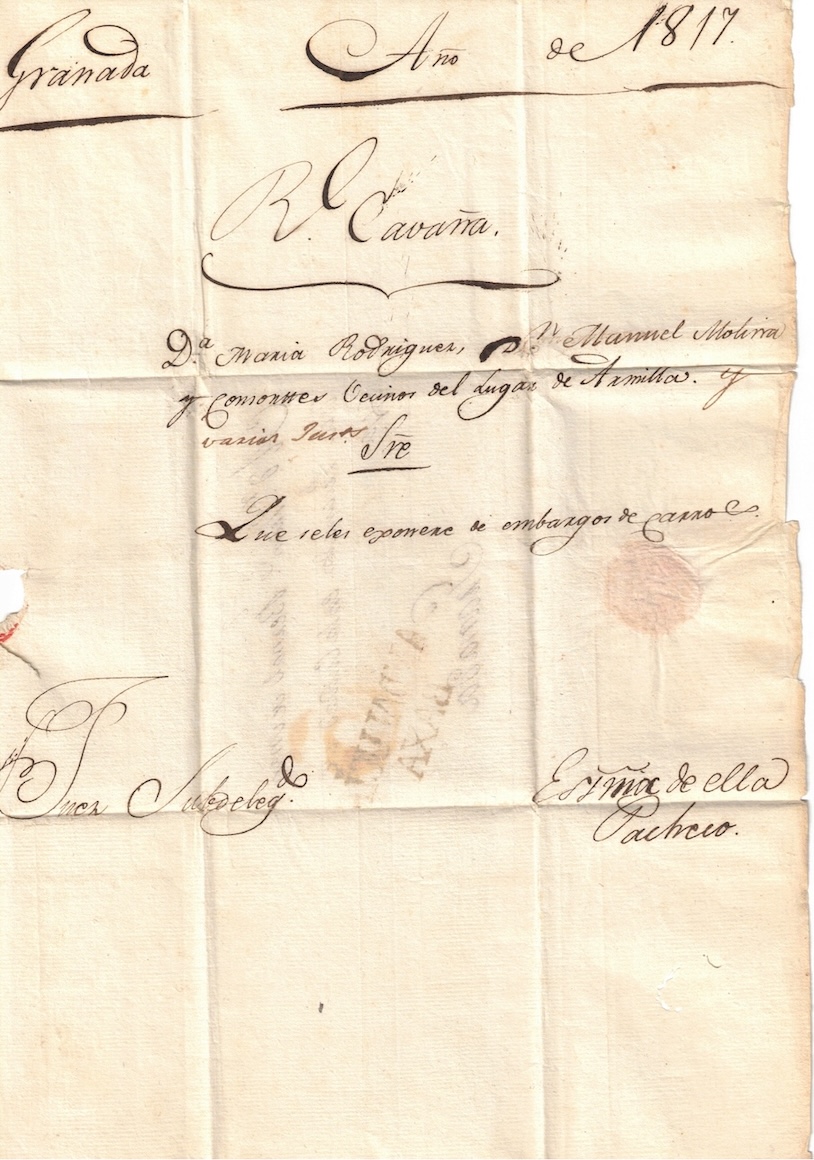 Granada Año de 1817.
R.l Cavaña.
D.a Maria Rodriguez, D.n Manuel Molina
y Consorttes Vecinos del Lugar de Armilla. y
varios
Sre
Que seles exonere de embargos de Carros.
Juez Subdeleg.do
Esſnia de ella
Pacheco.
ANDALUCIA
BAXA